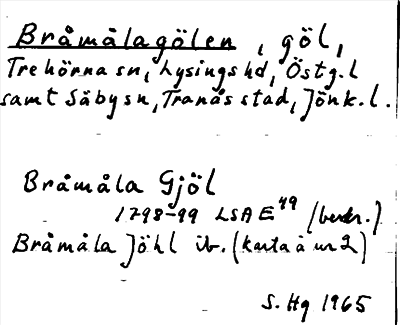 Bråmålagölen, göl,
Trehörna sn, Lysings hd, Östg.l
samt Säby sn, Tranås stad, Jönk.l.
Bråmåla Gjöl
1798-99 LSA E 49 (beskr.)
Bråmåla Jöhl ib. (karta à nr 2)
S. Hg 1965